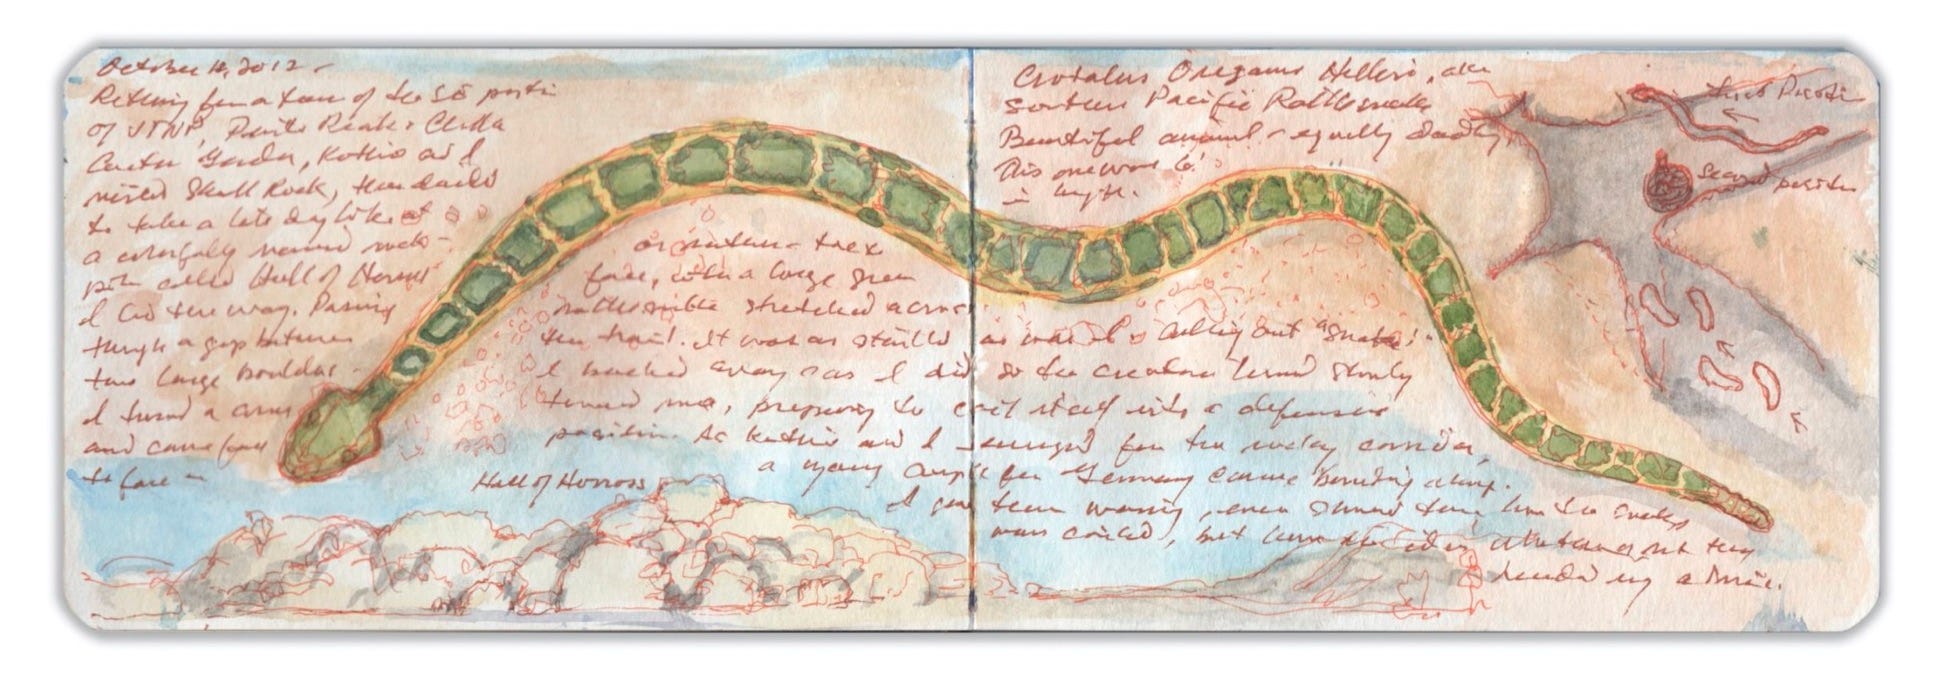 October 14, 2012 -
Retting for a tour of the SE
of JTNP, & Cholla
Cactus Garden, Kathie and I
visited Skull Rock, then decided
to take a late day hike at
a colorfully named
called Hall of Horrors
I led the way. Passing
through a gap between
two large boulders -
I turned a corner
and came face
to face -
or rather - face
face, with a large green
rattlesnake stretched across
the trail. It was as startled as was I - calling out "snake!"
I backed away & as I did so the creature turned slowly
toward me, preparing to coil itself into a defensive
position. As Kathie and I emerged from the rocky corridor,
a young couple from Germany came bounding along.
I gave them warning, even showed them how the snake
was coiled, but have no idea whether or not they
heeded my advice.
Hall of Horrors
Crotalus Oreganus Helleri, aka
Southern Pacific Rattlesnake
Beautiful animal - equally deadly,
this one was 6'
in length.
First Position
Second position